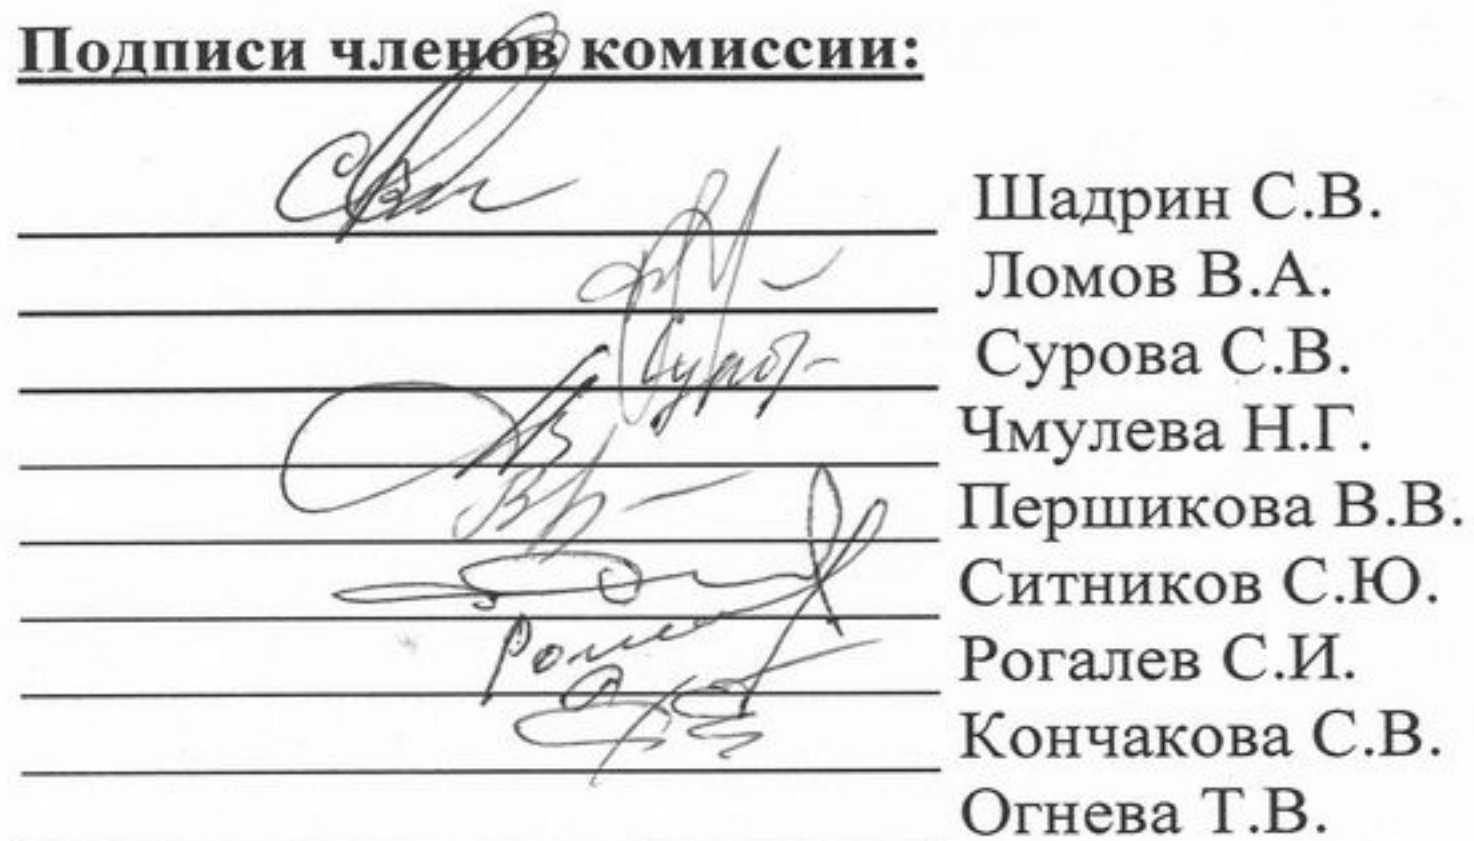 Подписи членов комиссии:
Шадрин С.В.
Ломов В.А.
Сурова С.В.
Чмулева Н.Г.
Першикова В.В.
Ситников С.Ю.
Рогалев С.И.
Кончакова С.В.
Огнева Т.В.